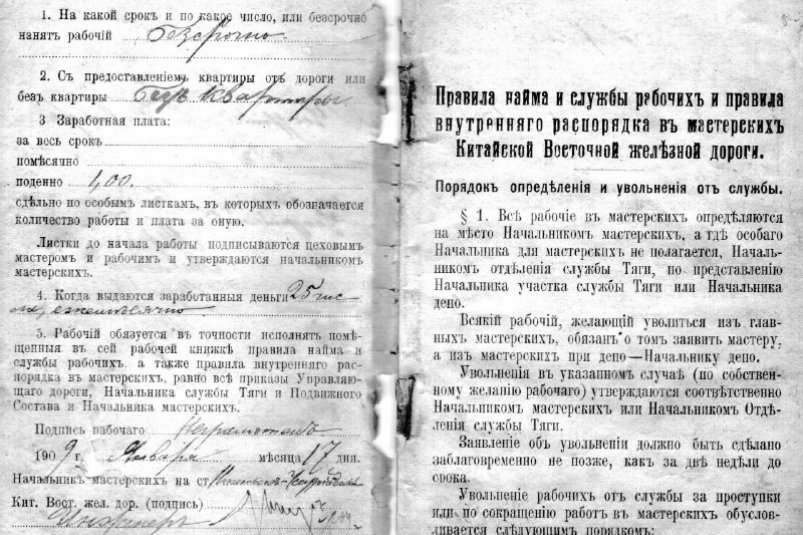 1. На какой срокъ и по какое число, или безсрочно
нанятъ рабочій Безсрочно
2. Съ предоставленіемъ квартиры отъ дороги или
безъ квартиры безъ квартиры
3 Заработная плата:
за весь срокъ
помѣсячно
поденно 1,00.
сдѣльно по особымъ листкамъ, въ которыхъ обозначается
количество работы и плата за оную.
Листки до начала работы подписываются цеховымъ
мастеромъ и рабочимъ и утверждаются начальникомъ
мастерскихъ.
4. Когда выдаются заработанныя деньги 25 чис
ла, ежемѣсячно
5. Рабочій обязуется въ точности исполнять помѣ-
щенныя въ сей рабочей книжкѣ правила найма и
службы рабочихъ, а также правила внутренняго рас-
порядка въ мастерскихъ, равно всѣ приказы Управляю-
щаго дороги, Начальника службы Тяги и Подвижного
Состава и Начальника мастерскихъ.
Подпись рабочаго неграмотенъ
1909 г. Января мѣсяца 17 дня.
Начальникъ мастерскихъ на ст
Кит. Вост. жел. дор. (подпись)
Инженеръ
Правила найма и службы рабочихъ и правила
внутренняго распорядка въ мастерскихъ
Китайской Восточной желѣзной дороги.
Порядокъ опредѣленія и увольненія отъ службы.
§ 1. Всѣ рабочіе въ мастерскихъ опредѣляются
на мѣсто Начальникомъ мастерскихъ, а гдѣ особаго
Начальника для мастерскихъ не полагается, Началь-
никомъ отдѣленія службы Тяги, по представленію
Начальника участка службы Тяги или Начальника
депо.
Всякій рабочій, желающій уволиться изъ глав-
ныхъ мастерскихъ, обязанъ о томъ заявить мастеру,
а изъ мастерскихъ при депо—Начальнику депо.
Увольненія въ указанномъ случаѣ (по собствен-
ному желанію рабочаго) утверждаются соотвѣтственно
Начальникомъ мастерскихъ или Начальникомъ Отдѣ-
ленія службы Тяги.
Заявленіе объ увольненіи должно быть сдѣлано
заблаговременно не позже, какъ за двѣ недѣли до
срока.
Увольненіе рабочихъ отъ службы за проступки
или по сокращенію работъ въ мастерскихъ обуслов-
ливается слѣдующимъ порядкомъ: